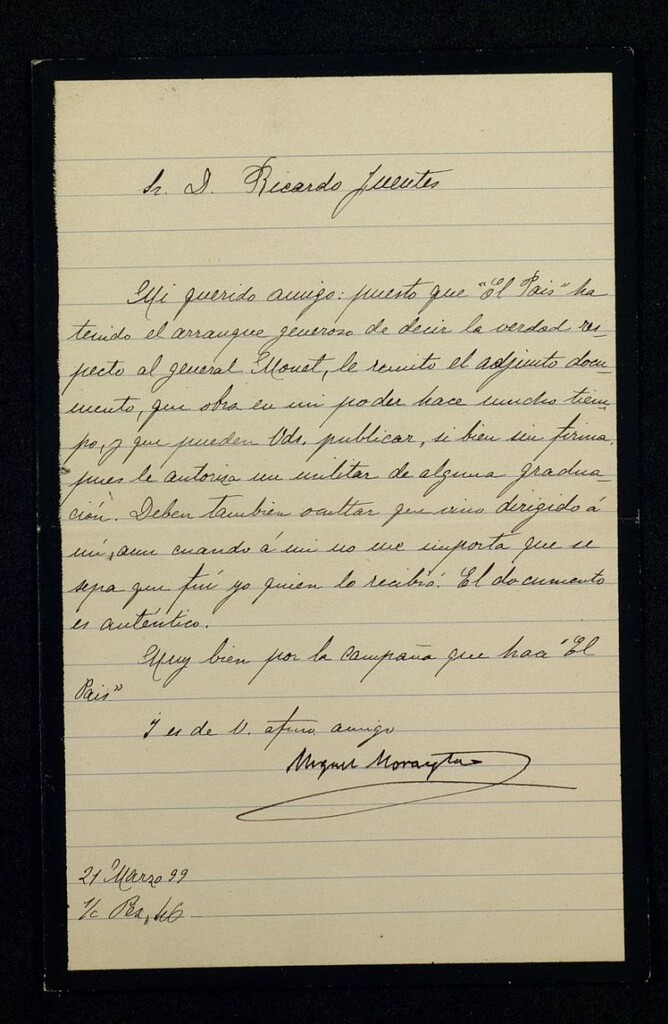 Sr. D. Ricardo Fuentes
Mi querido amigo: puesto que "El Pais" ha
tenido el arranque generoso de decir la verdad res-
pecto al general Monet, le remito el adjunto docu-
mento, que obra en mi poder hace mucho tiem-
po, y que pueden Vds. publicar, si bien sin firma,
pues le autoriza un militar de alguna gradua-
ción. Deben tambien ocultar que vino dirigido á
mí, aun cuando á mi no me importa que se
sepa que fuí yo quien lo recibió. El documento
es auténtico.
Muy bien por la campaña que hace "El
Pais"
Y es de V. afmo. amigo
Miguel Morayta
21 Marzo 99